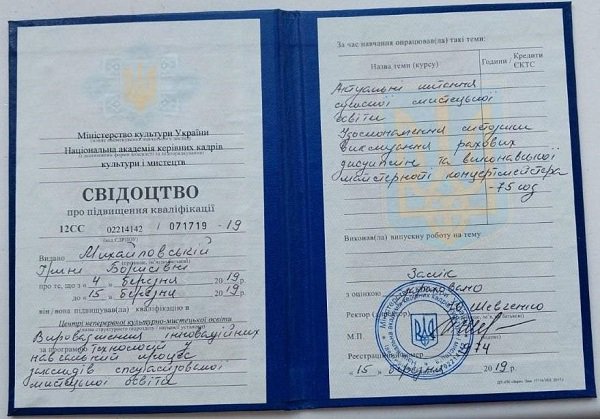 Міністерство культури України
Національна академія керівних кадрів
культури і мистецтв
СВІДОЦТВО
про підвищення кваліфікації
12СС 02214142 / 071719 - 19
(код ЄДРПОУ)
Видано Михайловській
Ірині Борисівні
про те, що з 4 березня 2019 р.
до 15 березня 2019 р.
він/вона підвищував(ла) кваліфікацію в
Центрі неперервної культурно-мистецької освіти
за програмою
Впровадження інноваційних
технологій у
навчальний процес
закладів спеціалізованої
мистецької освіти
За час навчання опрацював(ла) такі теми:
Назва теми (курсу) Години Кредити ЄКТС
Актуальні питання
сучасної мистецької
освіти
Удосконалення методики
викладання фахових
дисциплін та виконавської
майстерності концертмейстера
- 75 год
Виконав(ла) випускну роботу на тему
Залік
з оцінкою зараховано
Ректор Шевченко
М.П.
Реєстраційний 74
"15" березня 2019 р.